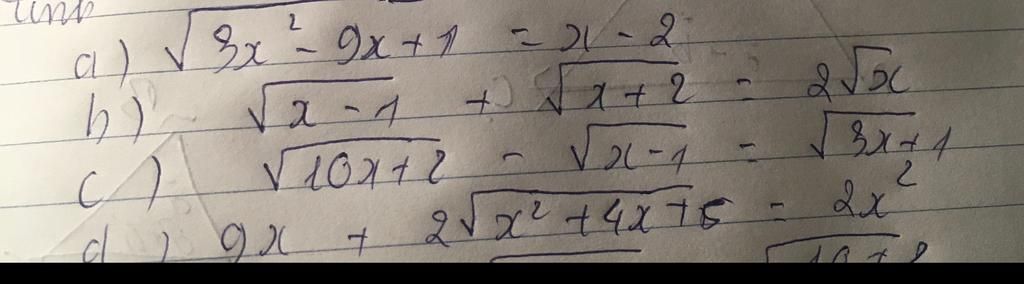 a) √(3x² - 9x + 1) = x - 2
b) √(x - 1) + √(x + 2) = 2√x
c) √(10x + 2) - √(x - 1) = √(3x + 1)
d) 9x + 2√(x² + 4x + 5) = 2x²